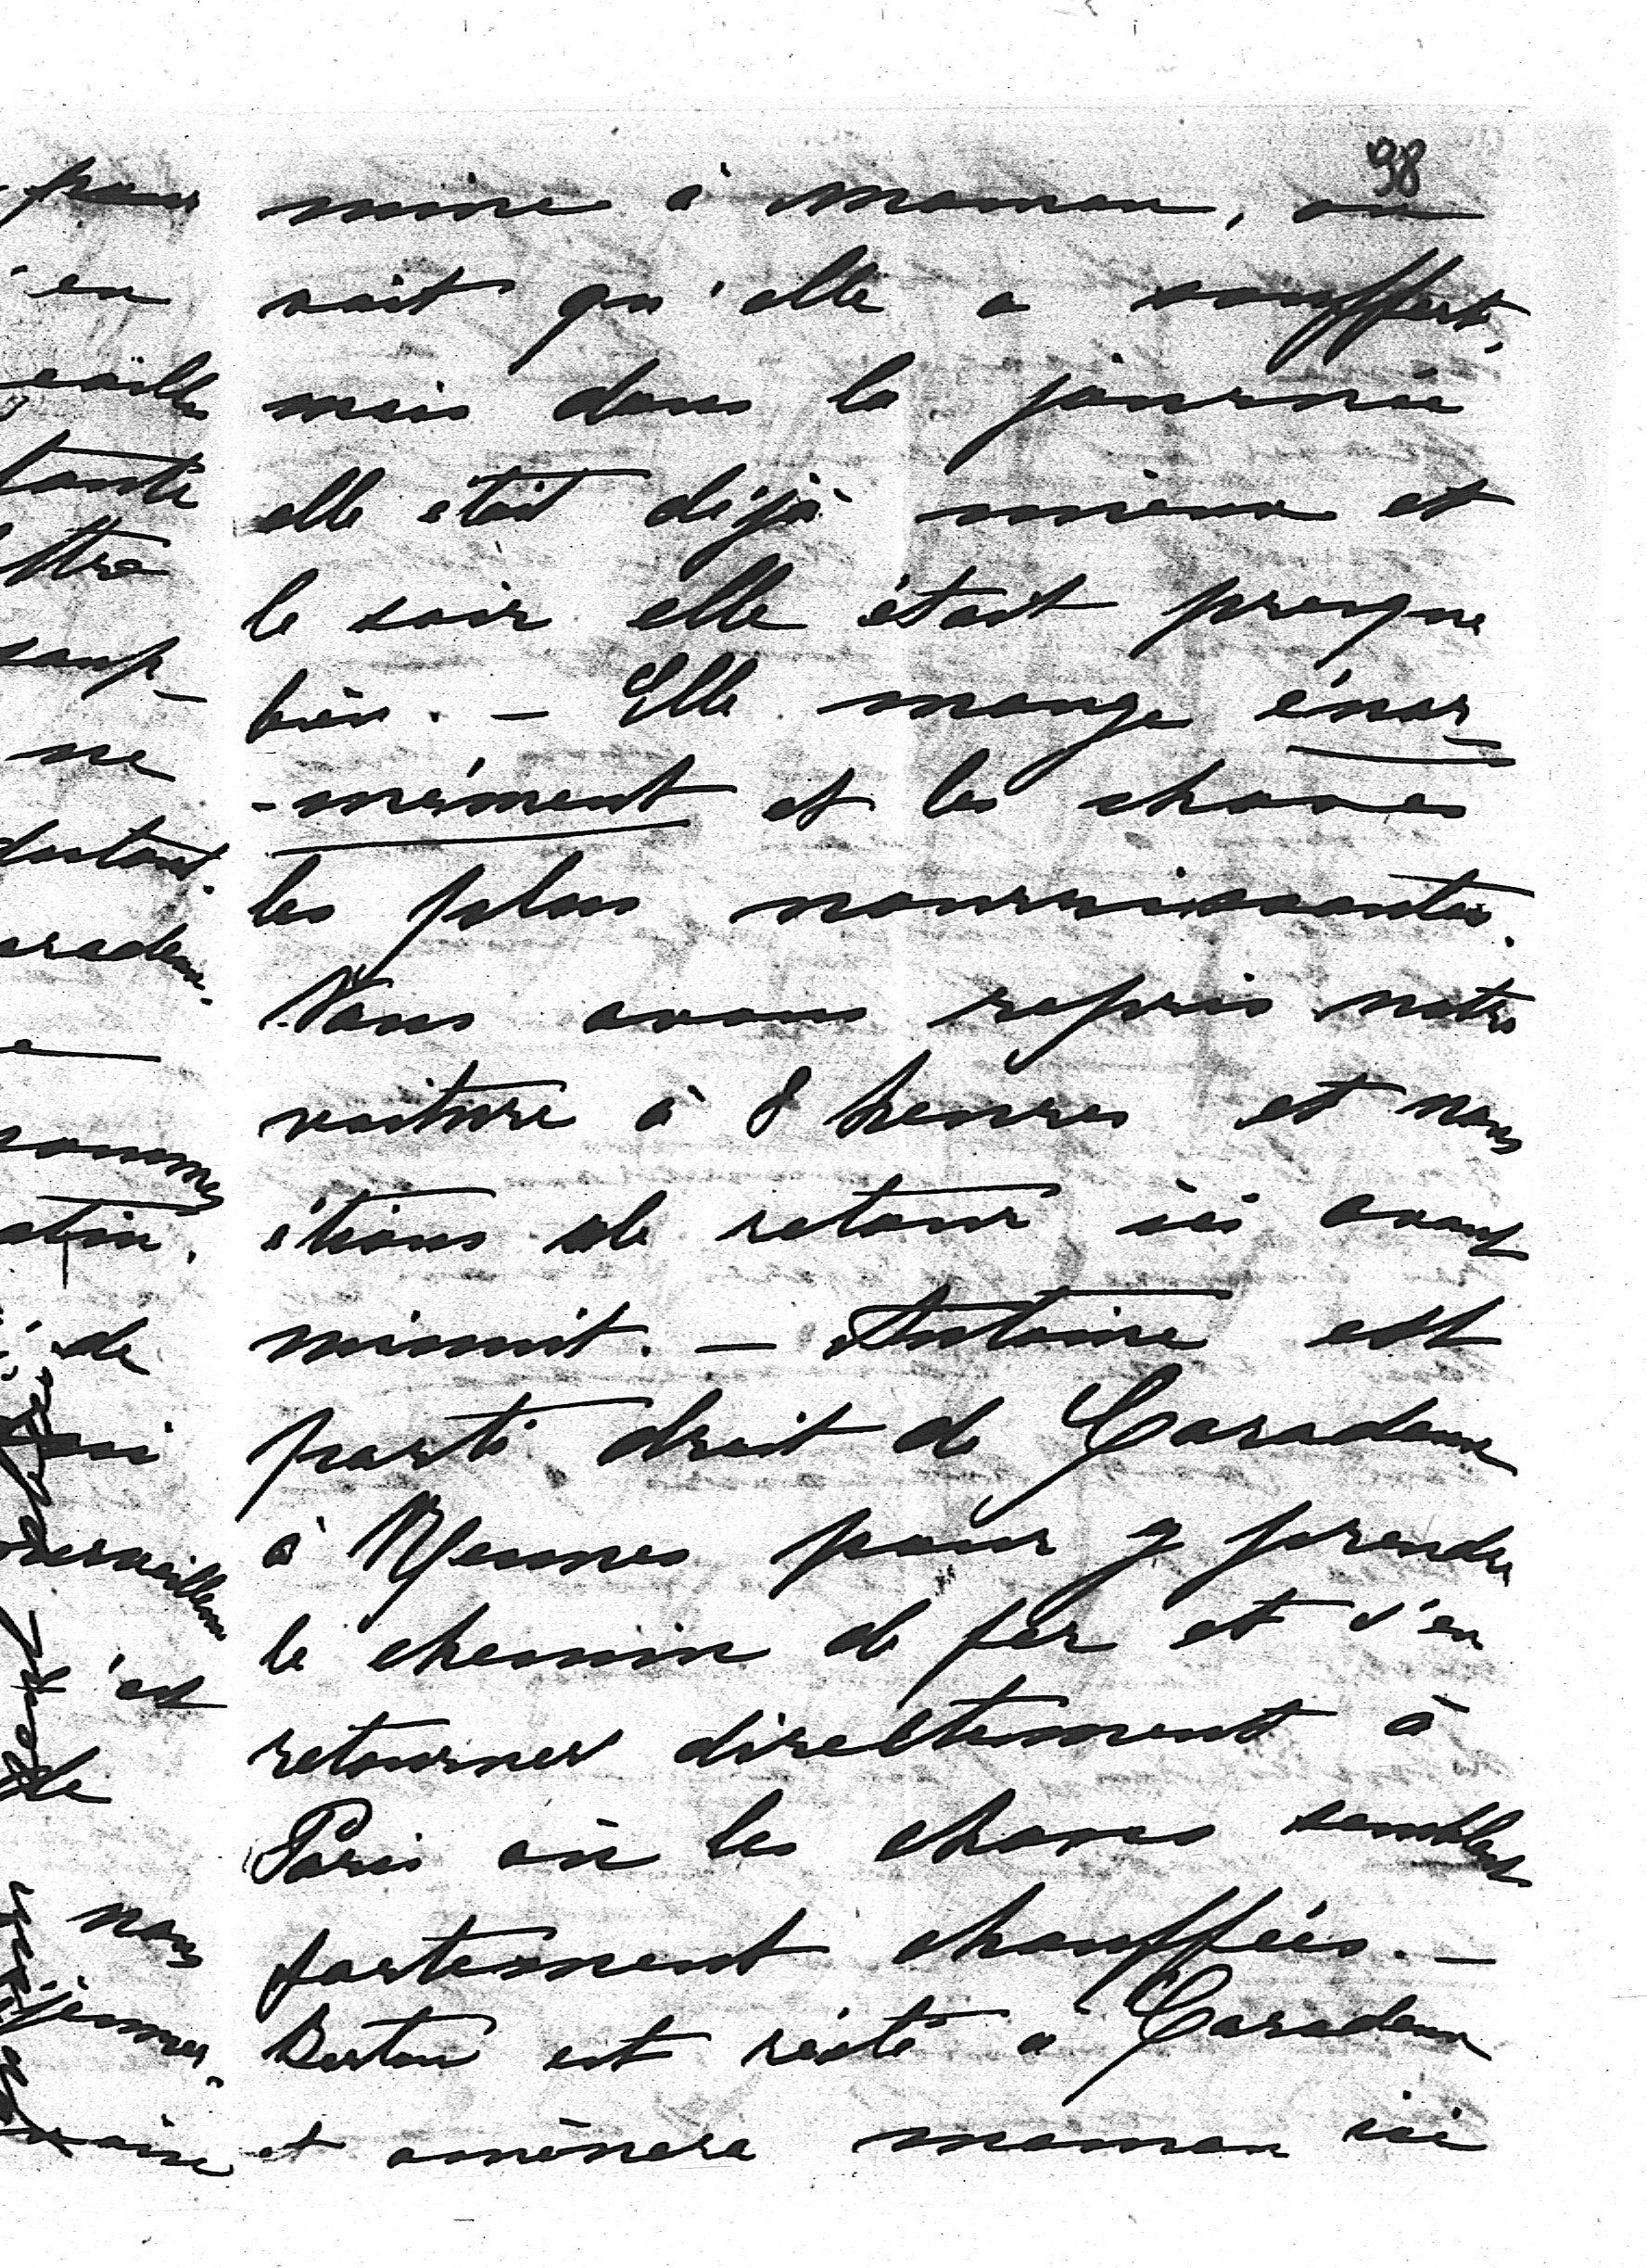 98
mine à maman, on
voit qu'elle a souffert,
mais dans la journée
elle était déjà mieux et
le soir elle était presque
bien. – Elle mange énor
-mément et les choses
les plus nourrissantes.
Nous avons repris notre
voiture à 8 heures et nous
étions de retour ici avant
minuit. – Antoine est
parti droit de Caradeuc
à Rennes pour y prendre
le chemin de fer et s'en
retourner directement à
Paris où les choses semblent
fortement chauffées. –
est resté à Caradeuc
et amènera maman ici